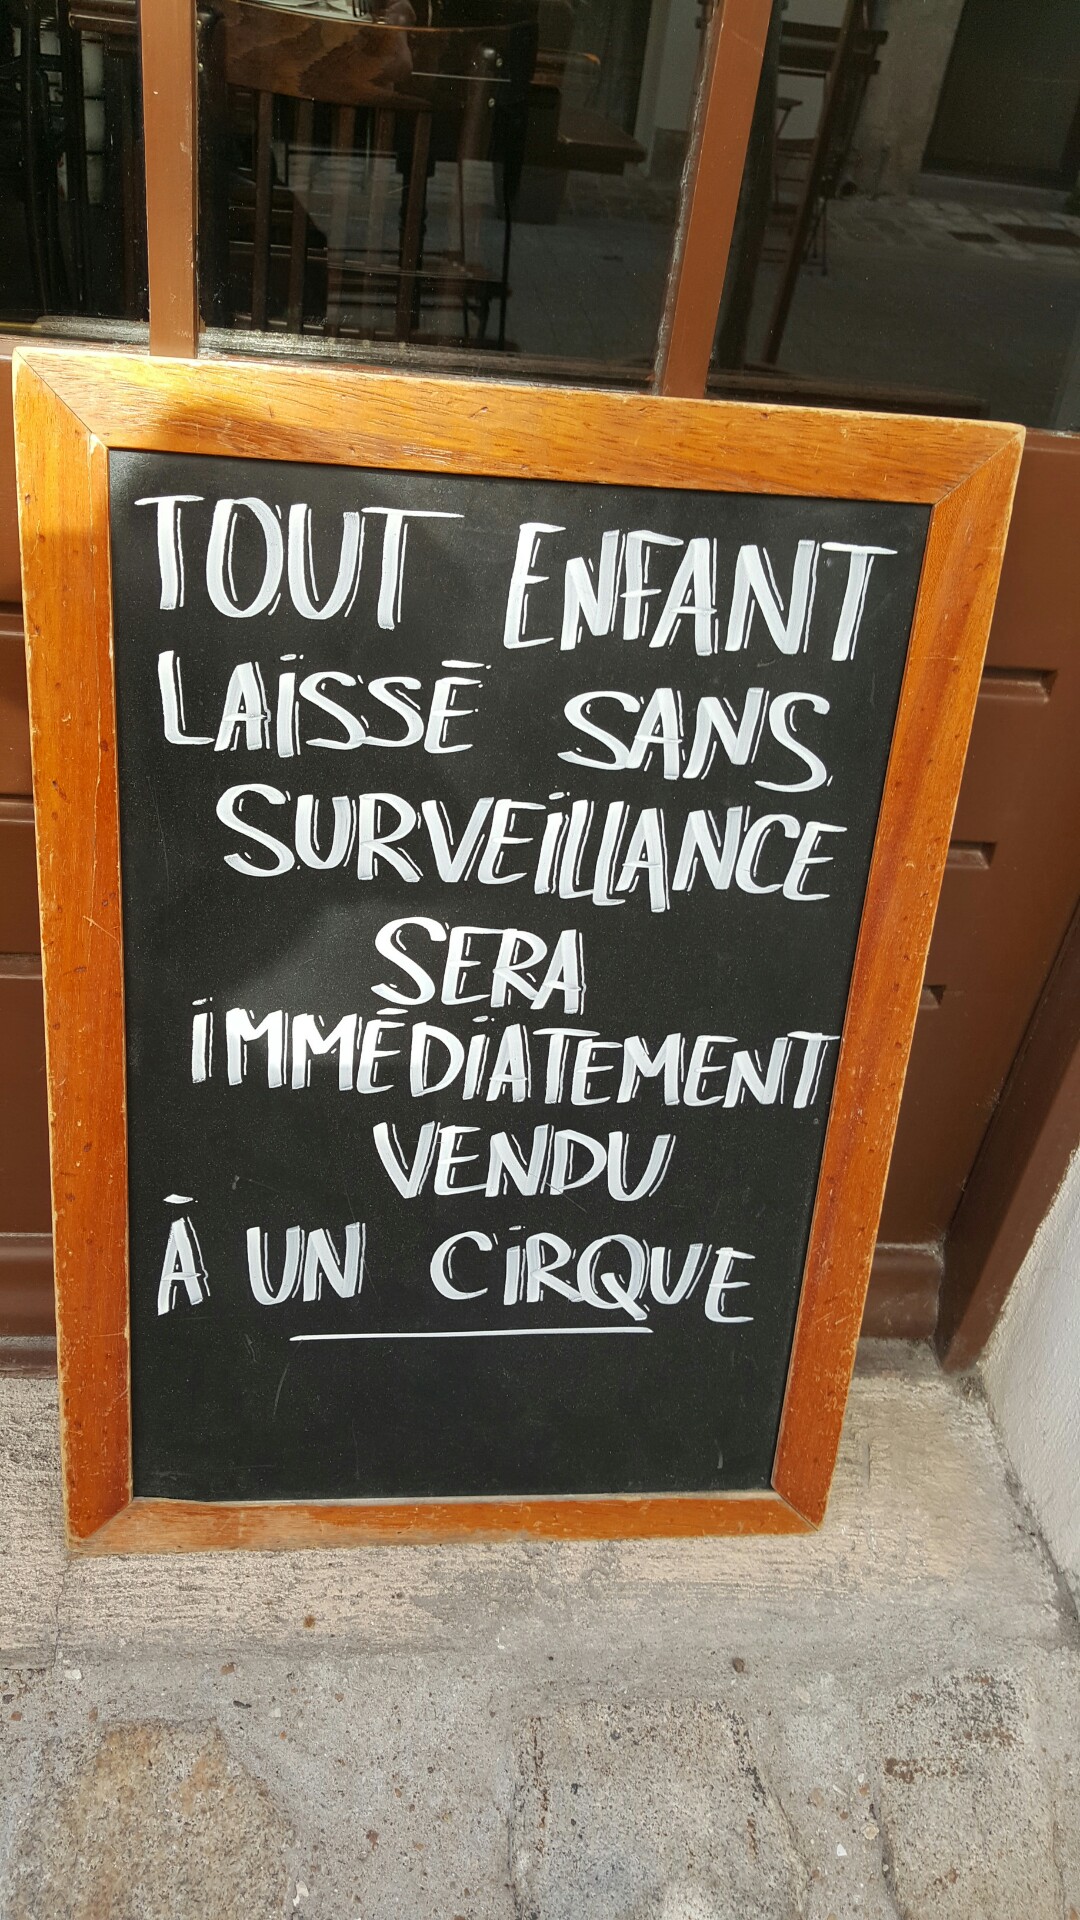 TOUT ENFANT
LAISSÉ SANS
SURVEILLANCE
SERA
IMMÉDIATEMENT
VENDU
À UN CIRQUE